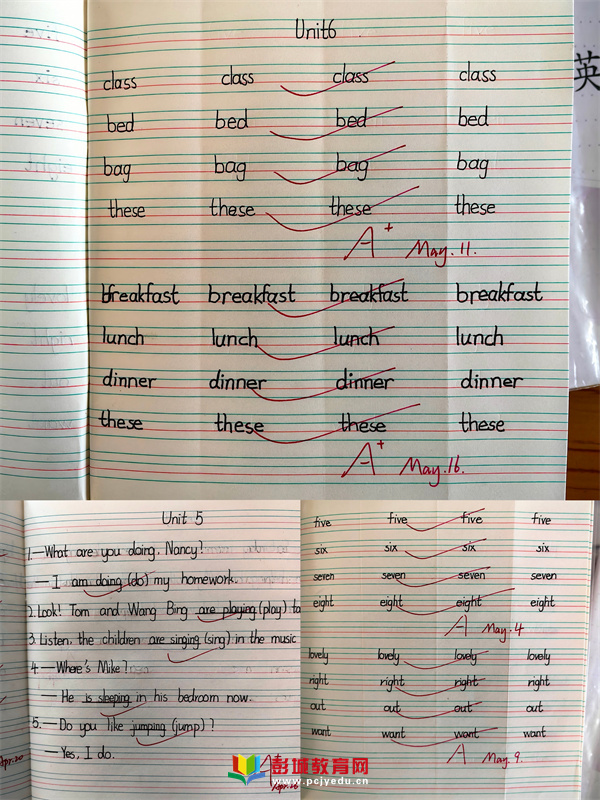 Unit6
class class class class
bed bed bed bed
bag bag bag bag
these these these these
A+ May.11.
breakfast breakfast breakfast breakfast
lunch lunch lunch lunch
dinner dinner dinner dinner
these these these these
A+ May.16.
英
Unit 5
1.—What are you doing, Nancy?
—I am doing (do) my homework.
2. Look! Tom and Wang Bing are playing (play) ta
3. Listen, the children are singing (sing) in the music
4.—Where's Mike?
—He is sleeping in his bedroom now.
5.—Do you like jumping (jump)?
—Yes, I do.
Apr.20
A
five five five five
six six six six
seven seven seven seven
eight eight eight eight
A May.4
lovely lovely lovely lovely
right right right right
out out out out
want want want want
A May.9.
彭城教育网
www.pcjyedu.cn